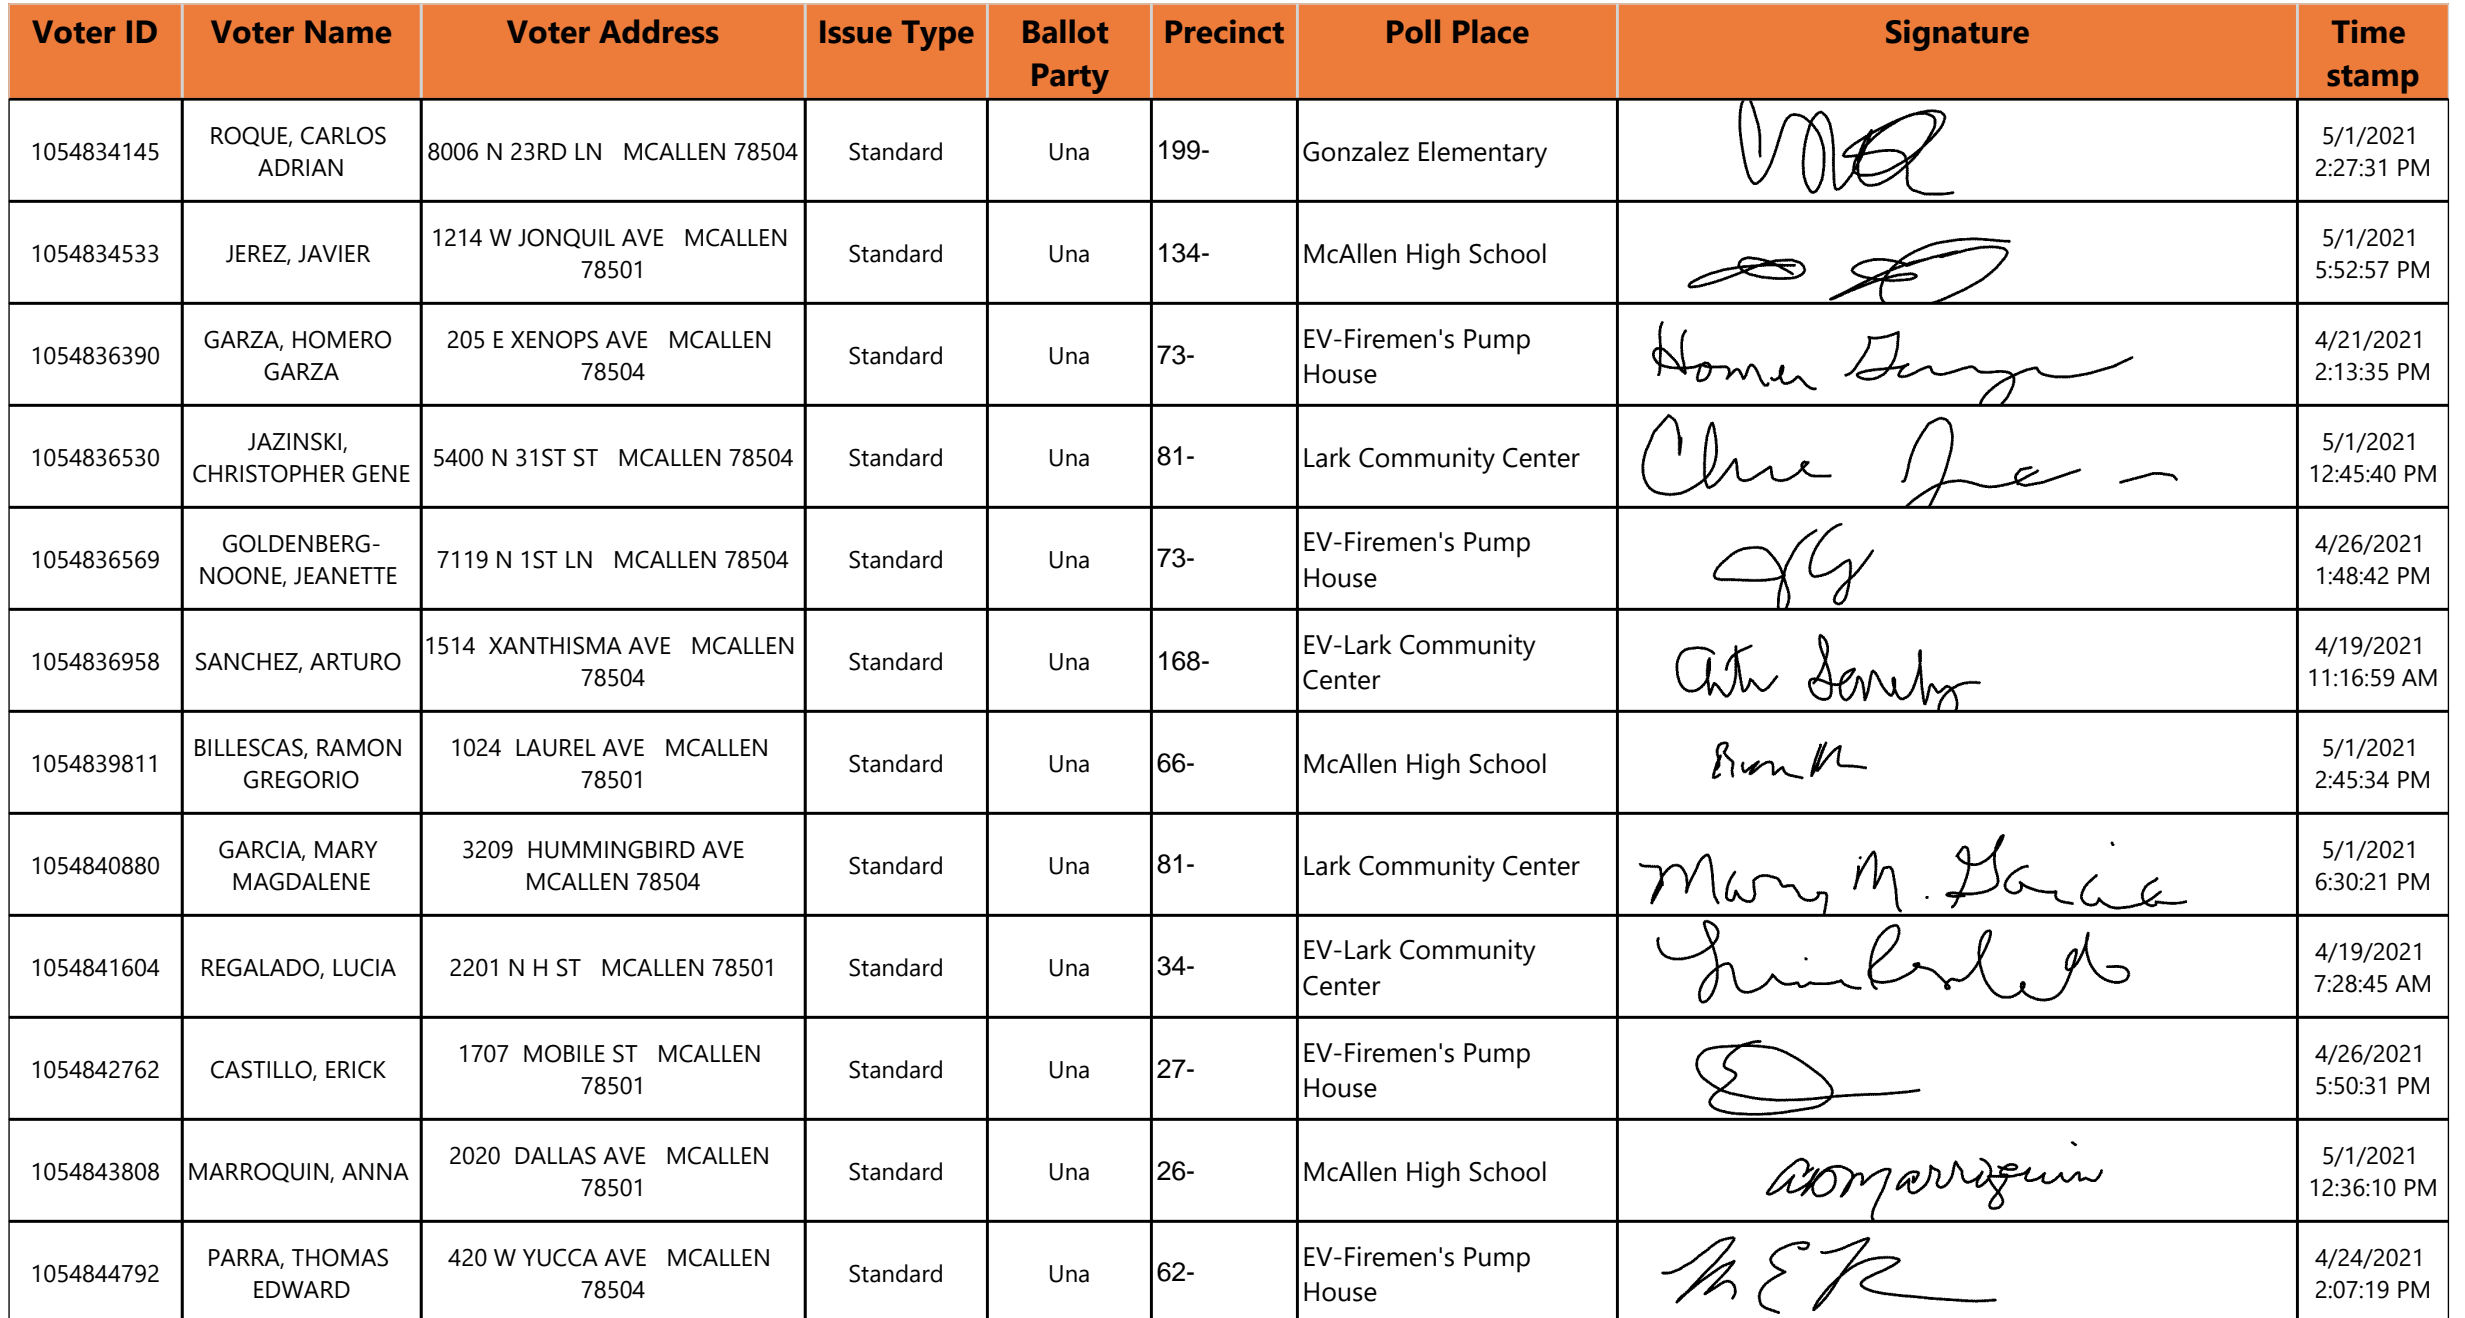 Voter ID Voter Name Voter Address Issue Type Ballot Party Precinct Poll Place Signature Time stamp
1054834145 ROQUE, CARLOS ADRIAN 8006 N 23RD LN MCALLEN 78504 Standard Una 199- Gonzalez Elementary 5/1/2021 2:27:31 PM
1054834533 JEREZ, JAVIER 1214 W JONQUIL AVE MCALLEN 78501 Standard Una 134- McAllen High School 5/1/2021 5:52:57 PM
1054836390 GARZA, HOMERO GARZA 205 E XENOPS AVE MCALLEN 78504 Standard Una 73- EV-Firemen's Pump House 4/21/2021 2:13:35 PM
1054836530 JAZINSKI, CHRISTOPHER GENE 5400 N 31ST ST MCALLEN 78504 Standard Una 81- Lark Community Center 5/1/2021 12:45:40 PM
1054836569 GOLDENBERG-NOONE, JEANETTE 7119 N 1ST LN MCALLEN 78504 Standard Una 73- EV-Firemen's Pump House JG 4/26/2021 1:48:42 PM
1054836958 SANCHEZ, ARTURO 1514 XANTHISMA AVE MCALLEN 78504 Standard Una 168- EV-Lark Community Center 4/19/2021 11:16:59 AM
1054839811 BILLESCAS, RAMON GREGORIO 1024 LAUREL AVE MCALLEN 78501 Standard Una 66- McAllen High School 5/1/2021 2:45:34 PM
1054840880 GARCIA, MARY MAGDALENE 3209 HUMMINGBIRD AVE MCALLEN 78504 Standard Una 81- Lark Community Center Mary M. Garcia 5/1/2021 6:30:21 PM
1054841604 REGALADO, LUCIA 2201 N H ST MCALLEN 78501 Standard Una 34- EV-Lark Community Center 4/19/2021 7:28:45 AM
1054842762 CASTILLO, ERICK 1707 MOBILE ST MCALLEN 78501 Standard Una 27- EV-Firemen's Pump House 4/26/2021 5:50:31 PM
1054843808 MARROQUIN, ANNA 2020 DALLAS AVE MCALLEN 78501 Standard Una 26- McAllen High School 5/1/2021 12:36:10 PM
1054844792 PARRA, THOMAS EDWARD 420 W YUCCA AVE MCALLEN 78504 Standard Una 62- EV-Firemen's Pump House 4/24/2021 2:07:19 PM